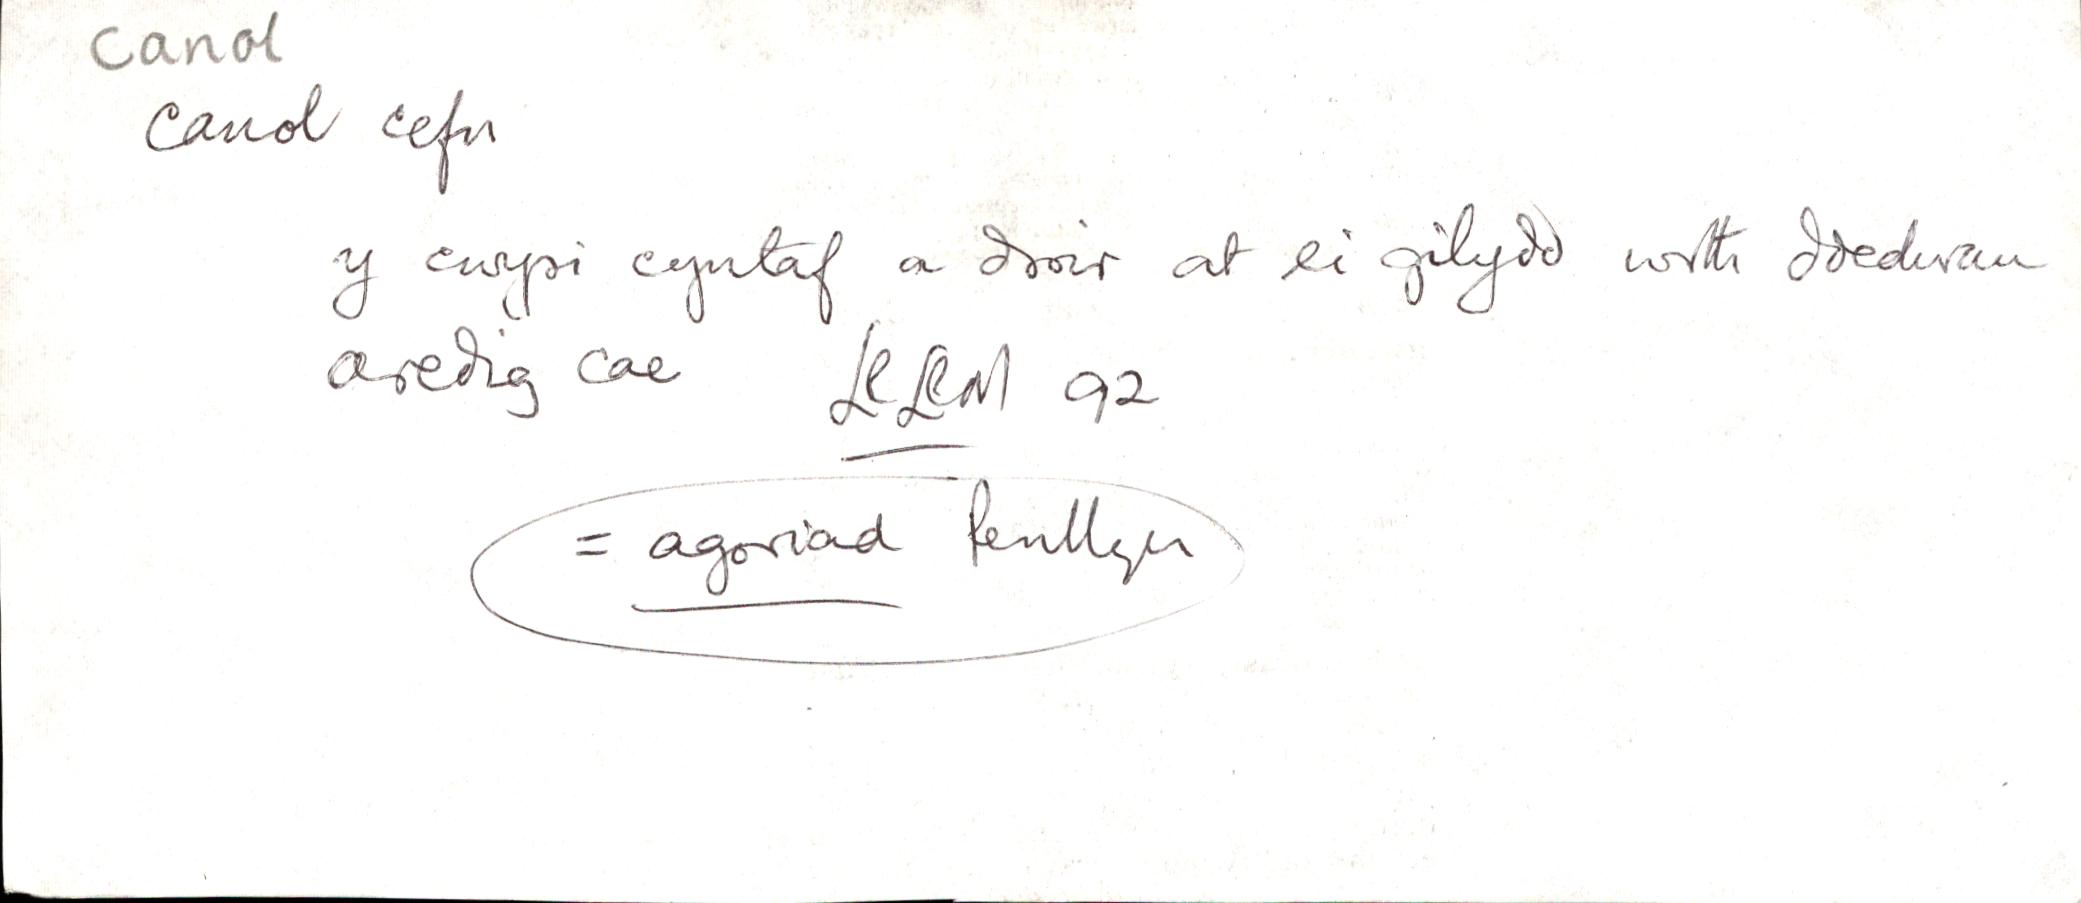 canol
canol cefn
y cwysi cyntaf a droir at ei gilydd wrth ddechrau
aredig cae LlLlM 92
= agoriad Penllyn